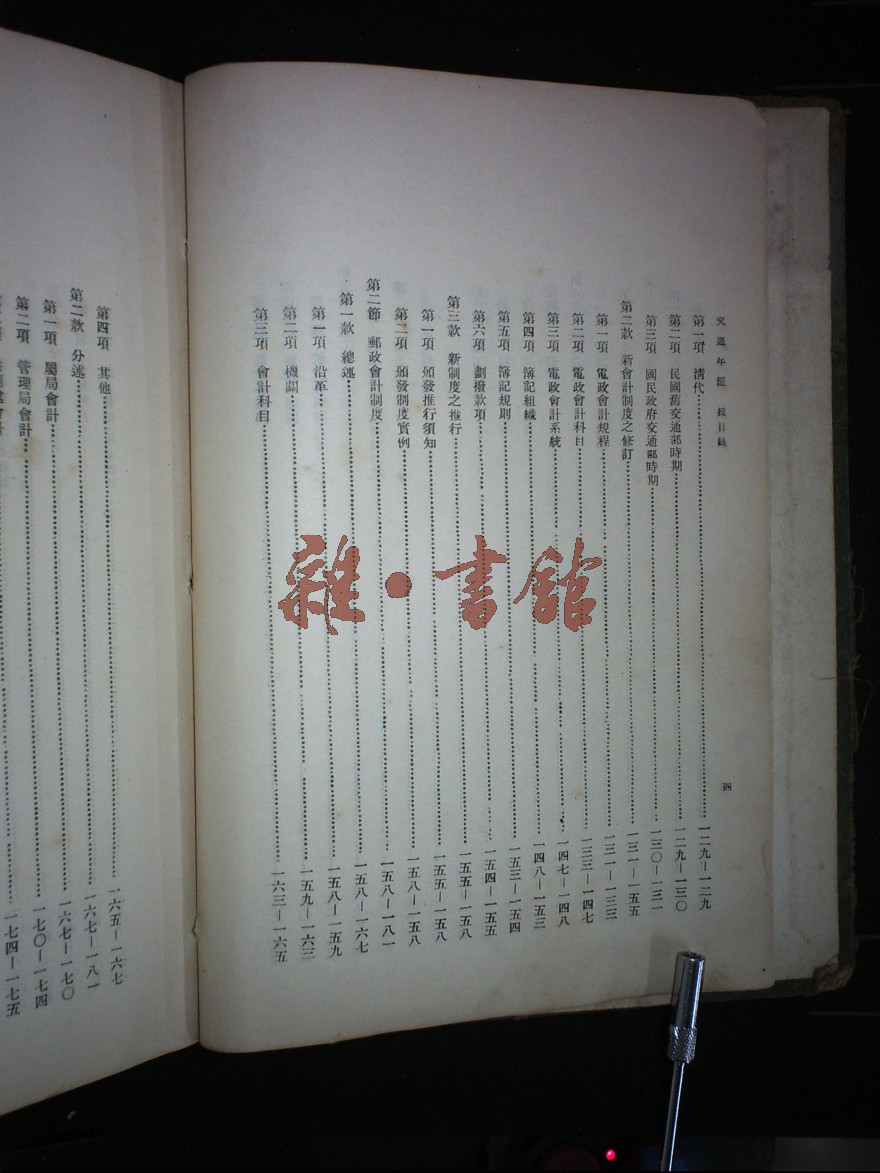 交通年鑑 總目錄
四
第一項 清代 一二九—一二九
第二項 民國舊交通部時期 一二九—一三〇
第三項 國民政府交通部時期 一三〇—一三一
第二款 新會計制度之修訂 一三一—一五五
第一項 電政會計規程 一三一—一三三
第二項 電政會計科目 一三三—一四七
第三項 電政會計系統 一四七—一四八
第四項 簿記組織 一四八—一五三
第五項 簿記規則 一五三—一五四
第六項 劃撥款項 一五四—一五五
第三款 新制度之推行 一五五—一五八
第一項 頒發推行須知 一五五—一五八
第二項 頒發制度實例 一五八—一五八
第二節 郵政會計制度 一五八—一八一
第一款 總述 一五八—一六七
第一項 沿革 一五八—一五九
第二項 機關 一五九—一六三
第三項 會計科目 一六三—一六五
第四項 其他 一六五—一六七
第二款 分述 一六七—一八一
第一項 屬局會計 一六七—一七〇
第二項 管理局會計 一七〇—一七四
一七四—一七五
雜·書館